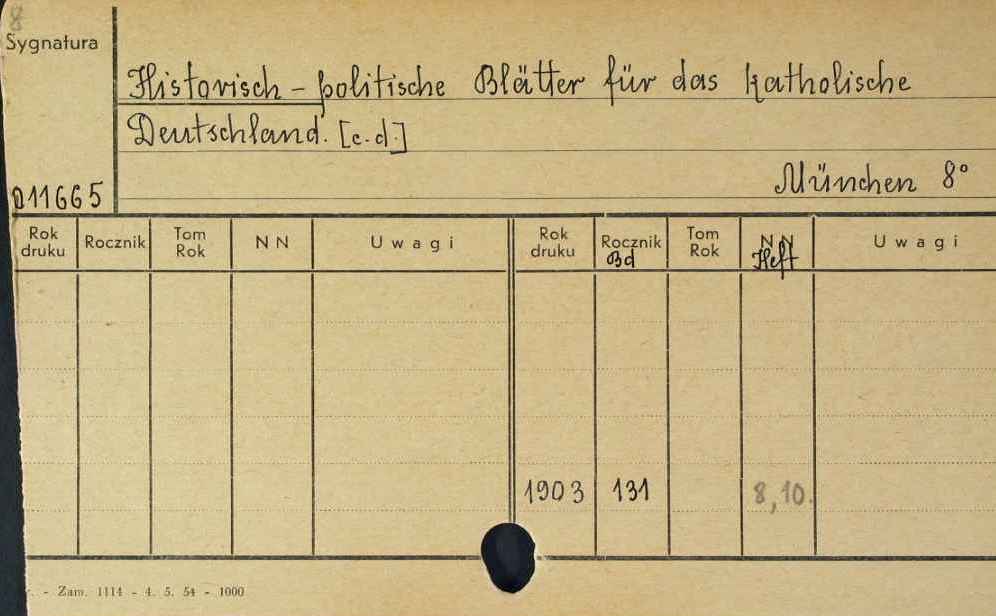 8
Sygnatura
Historisch-politische Blätter für das katholische
Deutschland. [c.d.]
München 8°
011665
Rok druku Rocznik Tom Rok NN Uwagi Rok druku Rocznik Bd Tom Rok NN Heft Uwagi
1903 131 8,10.
- Zam. 1114 - 4. 5. 54 - 1000